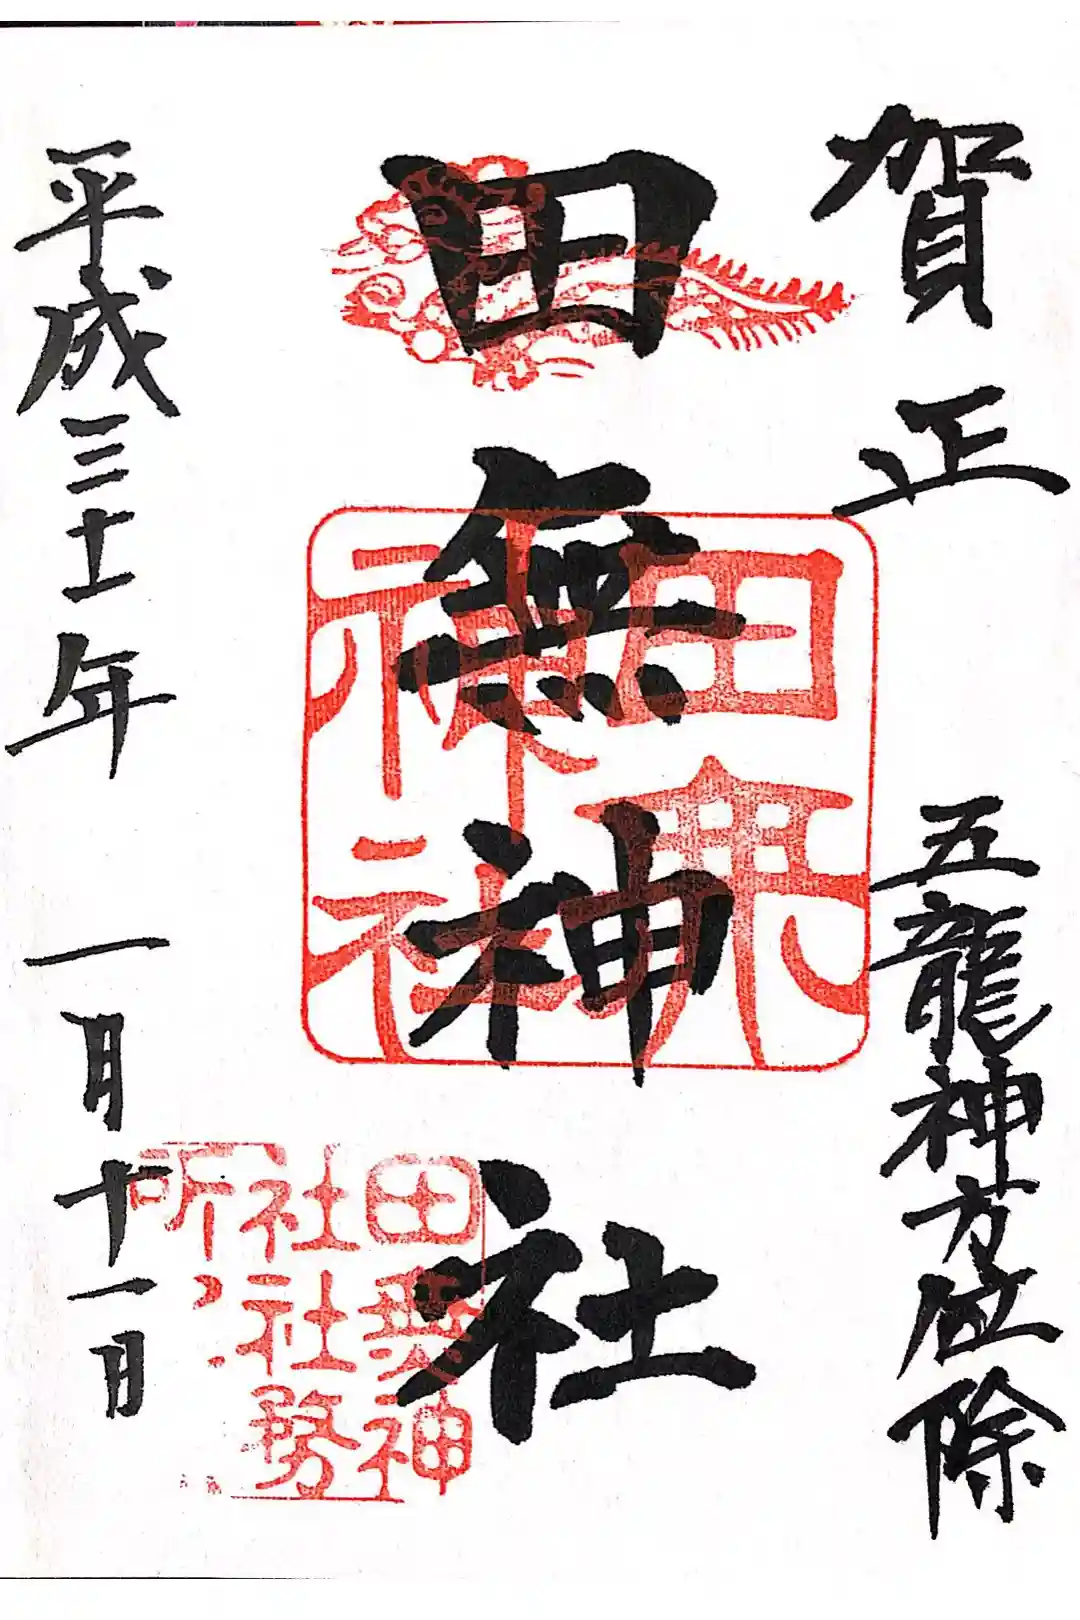 賀正
五龍神方位除
田無神社
田無
神社
田無神
社社務
所
平成三十一年 一月十一日